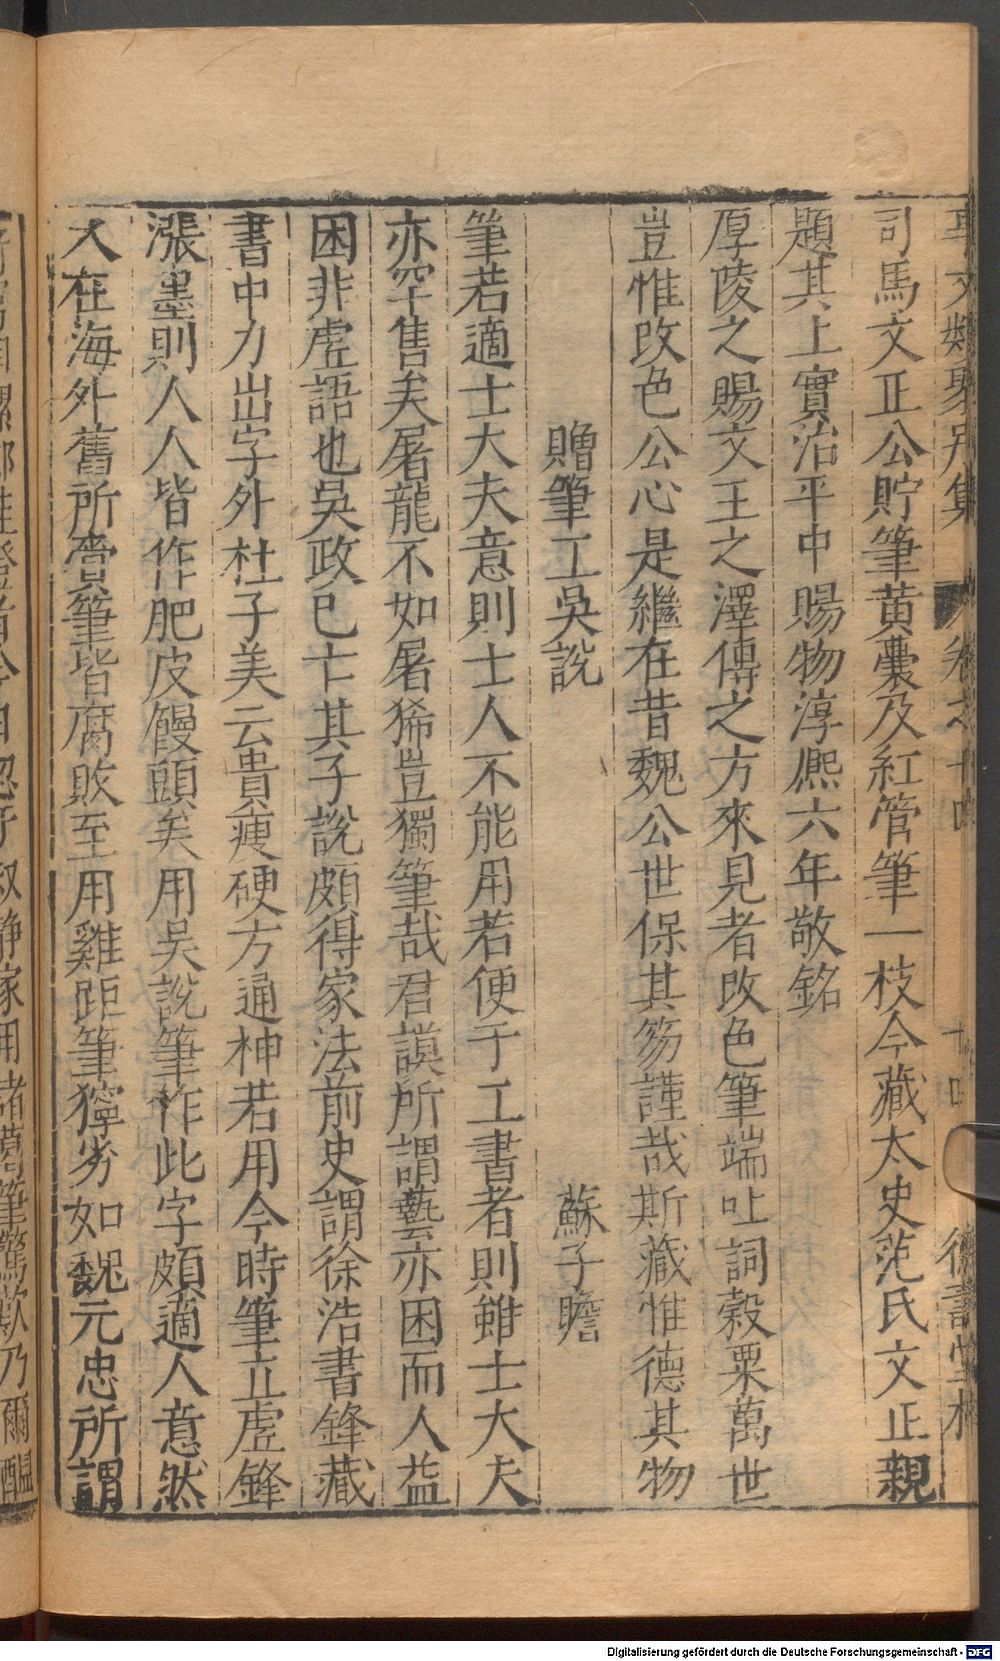 事文類聚別集 卷之十四 十四 德壽堂梓
司馬文正公貯筆黃囊及紅管筆一枝今藏太史范氏文正親
題其上實治平中賜物淳熈六年敬銘
厚陵之賜文王之澤傳之方來見者改色筆端吐詞穀粟萬世
豈惟改色公心是繼在昔魏公世保其笏謹哉斯藏惟德其物
贈筆工吳說 蘇子瞻
筆若適士大夫意則士人不能用若便于工書者則雖士大夫
亦罕售矣屠龍不如屠狶豈獨筆哉君謨所謂藝亦困而人益
困非虛語也吳政已亡其子說頗得家法前史謂徐浩書鋒藏
書中力出字外杜子美云貴瘦硬方通神若用今時筆立虛鋒
漲墨則人人皆作肥皮饅頭矣用吳說筆作此字頗適人意然
久在海外舊所賫筆皆腐敗至用雞距筆獰劣如魏元忠所謂
Digitalisierung gefördert durch die Deutsche Forschungsgemeinschaft - DFG